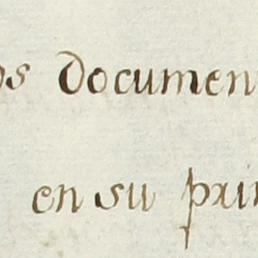 os documen
en su prin